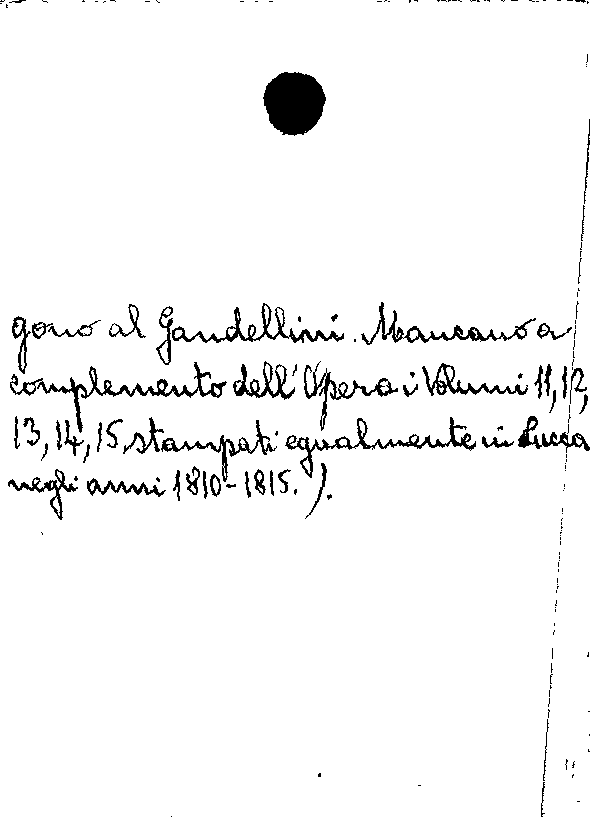 gono al Gandellini. Mancano a
complemento dell'Opera i Volumi 11, 12,
13, 14, 15, stampati egualmente in Lucca
negli anni 1810-1815.).